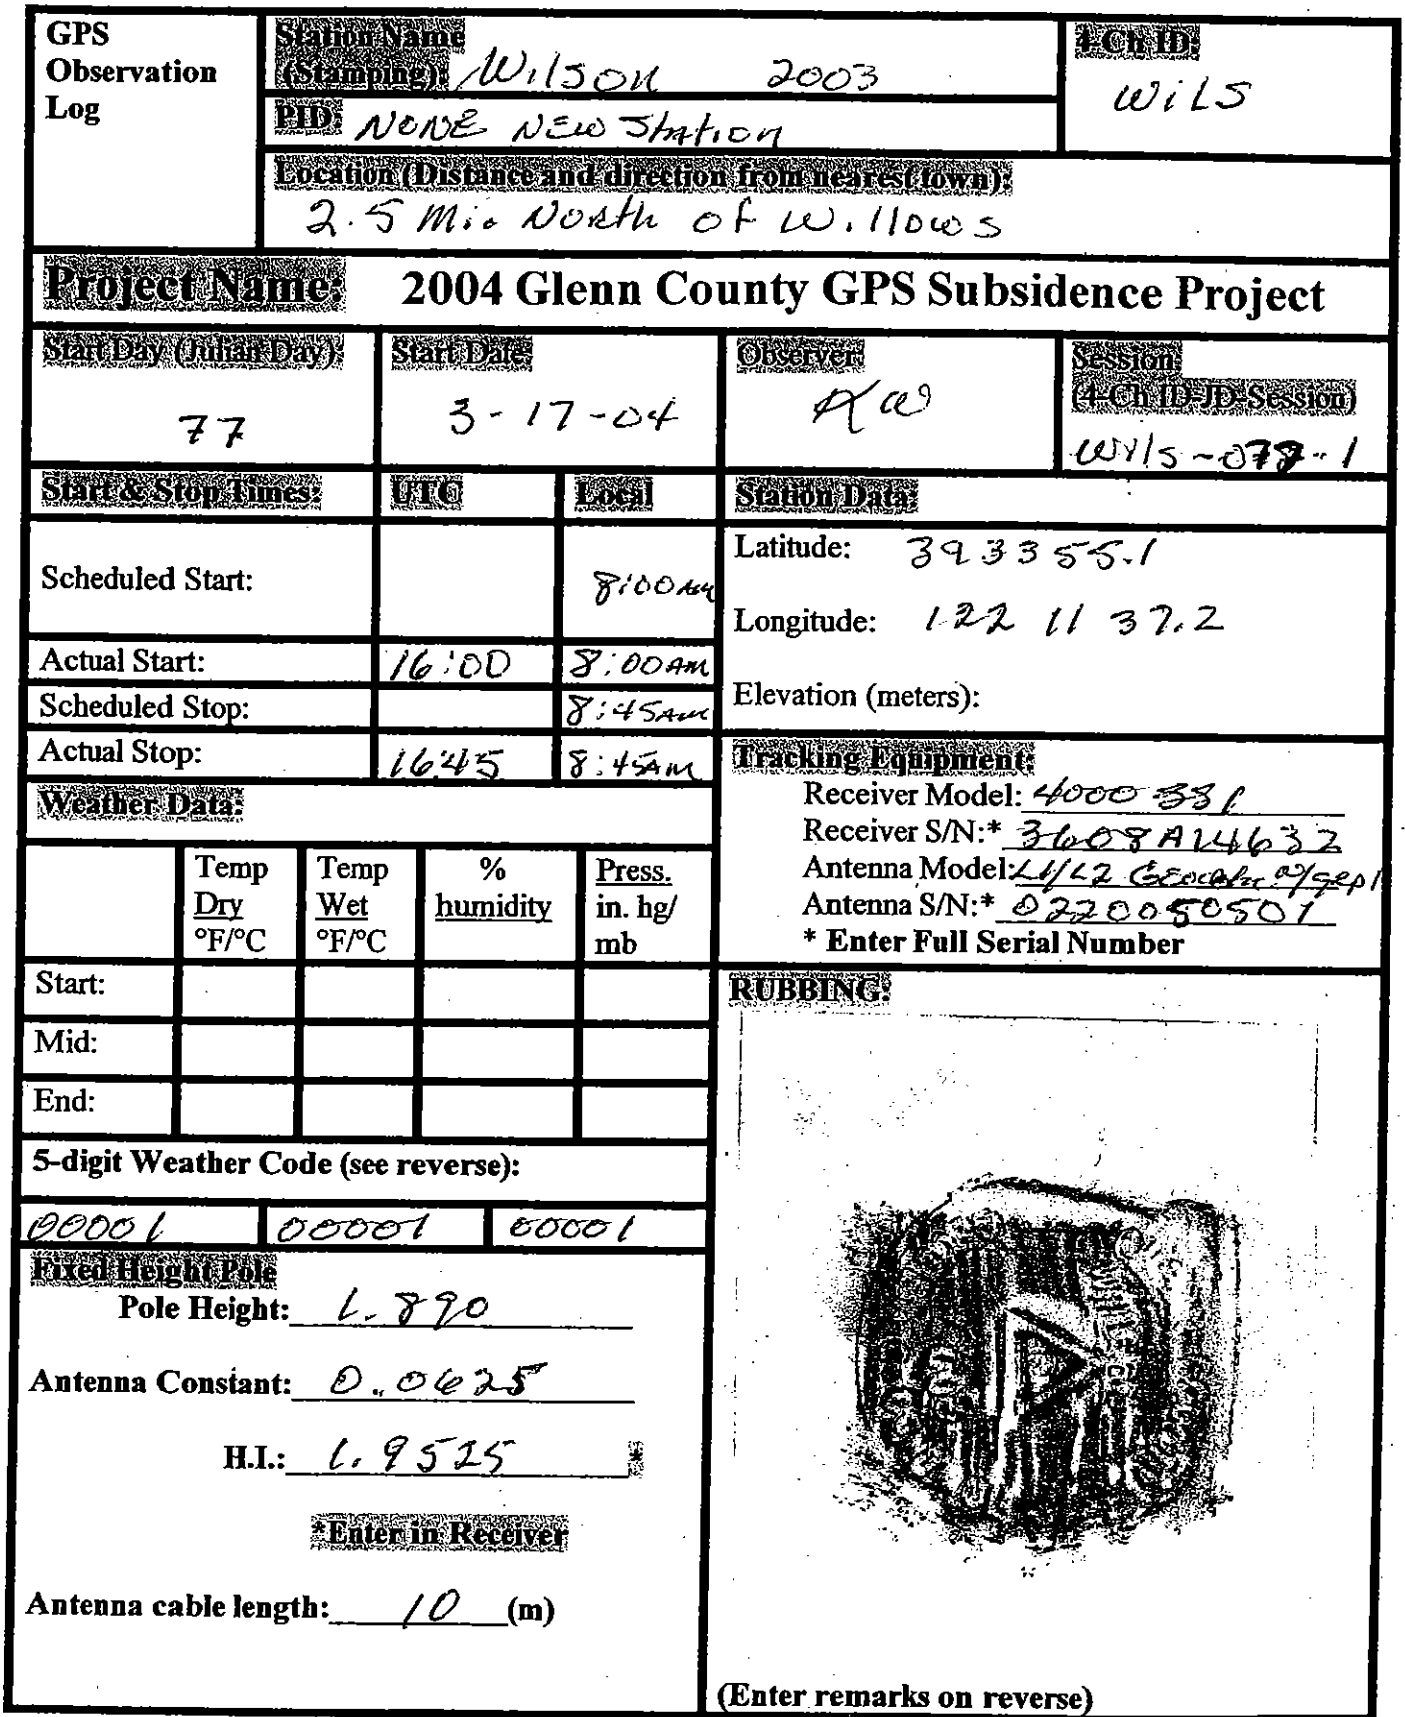 GPS
Observation
Log
Station Name
(Stamping): Wilson 2003
4-Ch ID:
WiLS
PID: NONE NEW Station
Location (Distance and direction from nearest town):
2.5 Mi. North of Willows
Project Name: 2004 Glenn County GPS Subsidence Project
Start Day (Julian Day):
77
Start Date
3-17-04
Observer:
KW
Session
(4-Ch ID-JD-Session)
Start & Stop Times: UTC Local
Station Data:
Scheduled Start: 8:00 AM
Latitude: 39 33 55.1
Longitude: 122 11 37.2
Elevation (meters):
Actual Start: 16:00 8:00 AM
Scheduled Stop: 8:45 AM
Actual Stop: 16:45 8:45 AM
Tracking Equipment:
Receiver Model: 4000
Receiver S/N:* 3608A14632
Antenna Model: L1/L2
Antenna S/N:* 0220050501
* Enter Full Serial Number
Weather Data:
Temp
Dry
°F/°C
Temp
Wet
°F/°C
%
humidity
Press.
in. hg/
mb
Start:
Mid:
End:
5-digit Weather Code (see reverse):
00001 00001 00001
Fixed Height Pole
Pole Height: 1.890
Antenna Constant: 0.0625
H.I.: 1.9525 *
*Enter in Receiver
Antenna cable length: 10 (m)
RUBBING:
(Enter remarks on reverse)